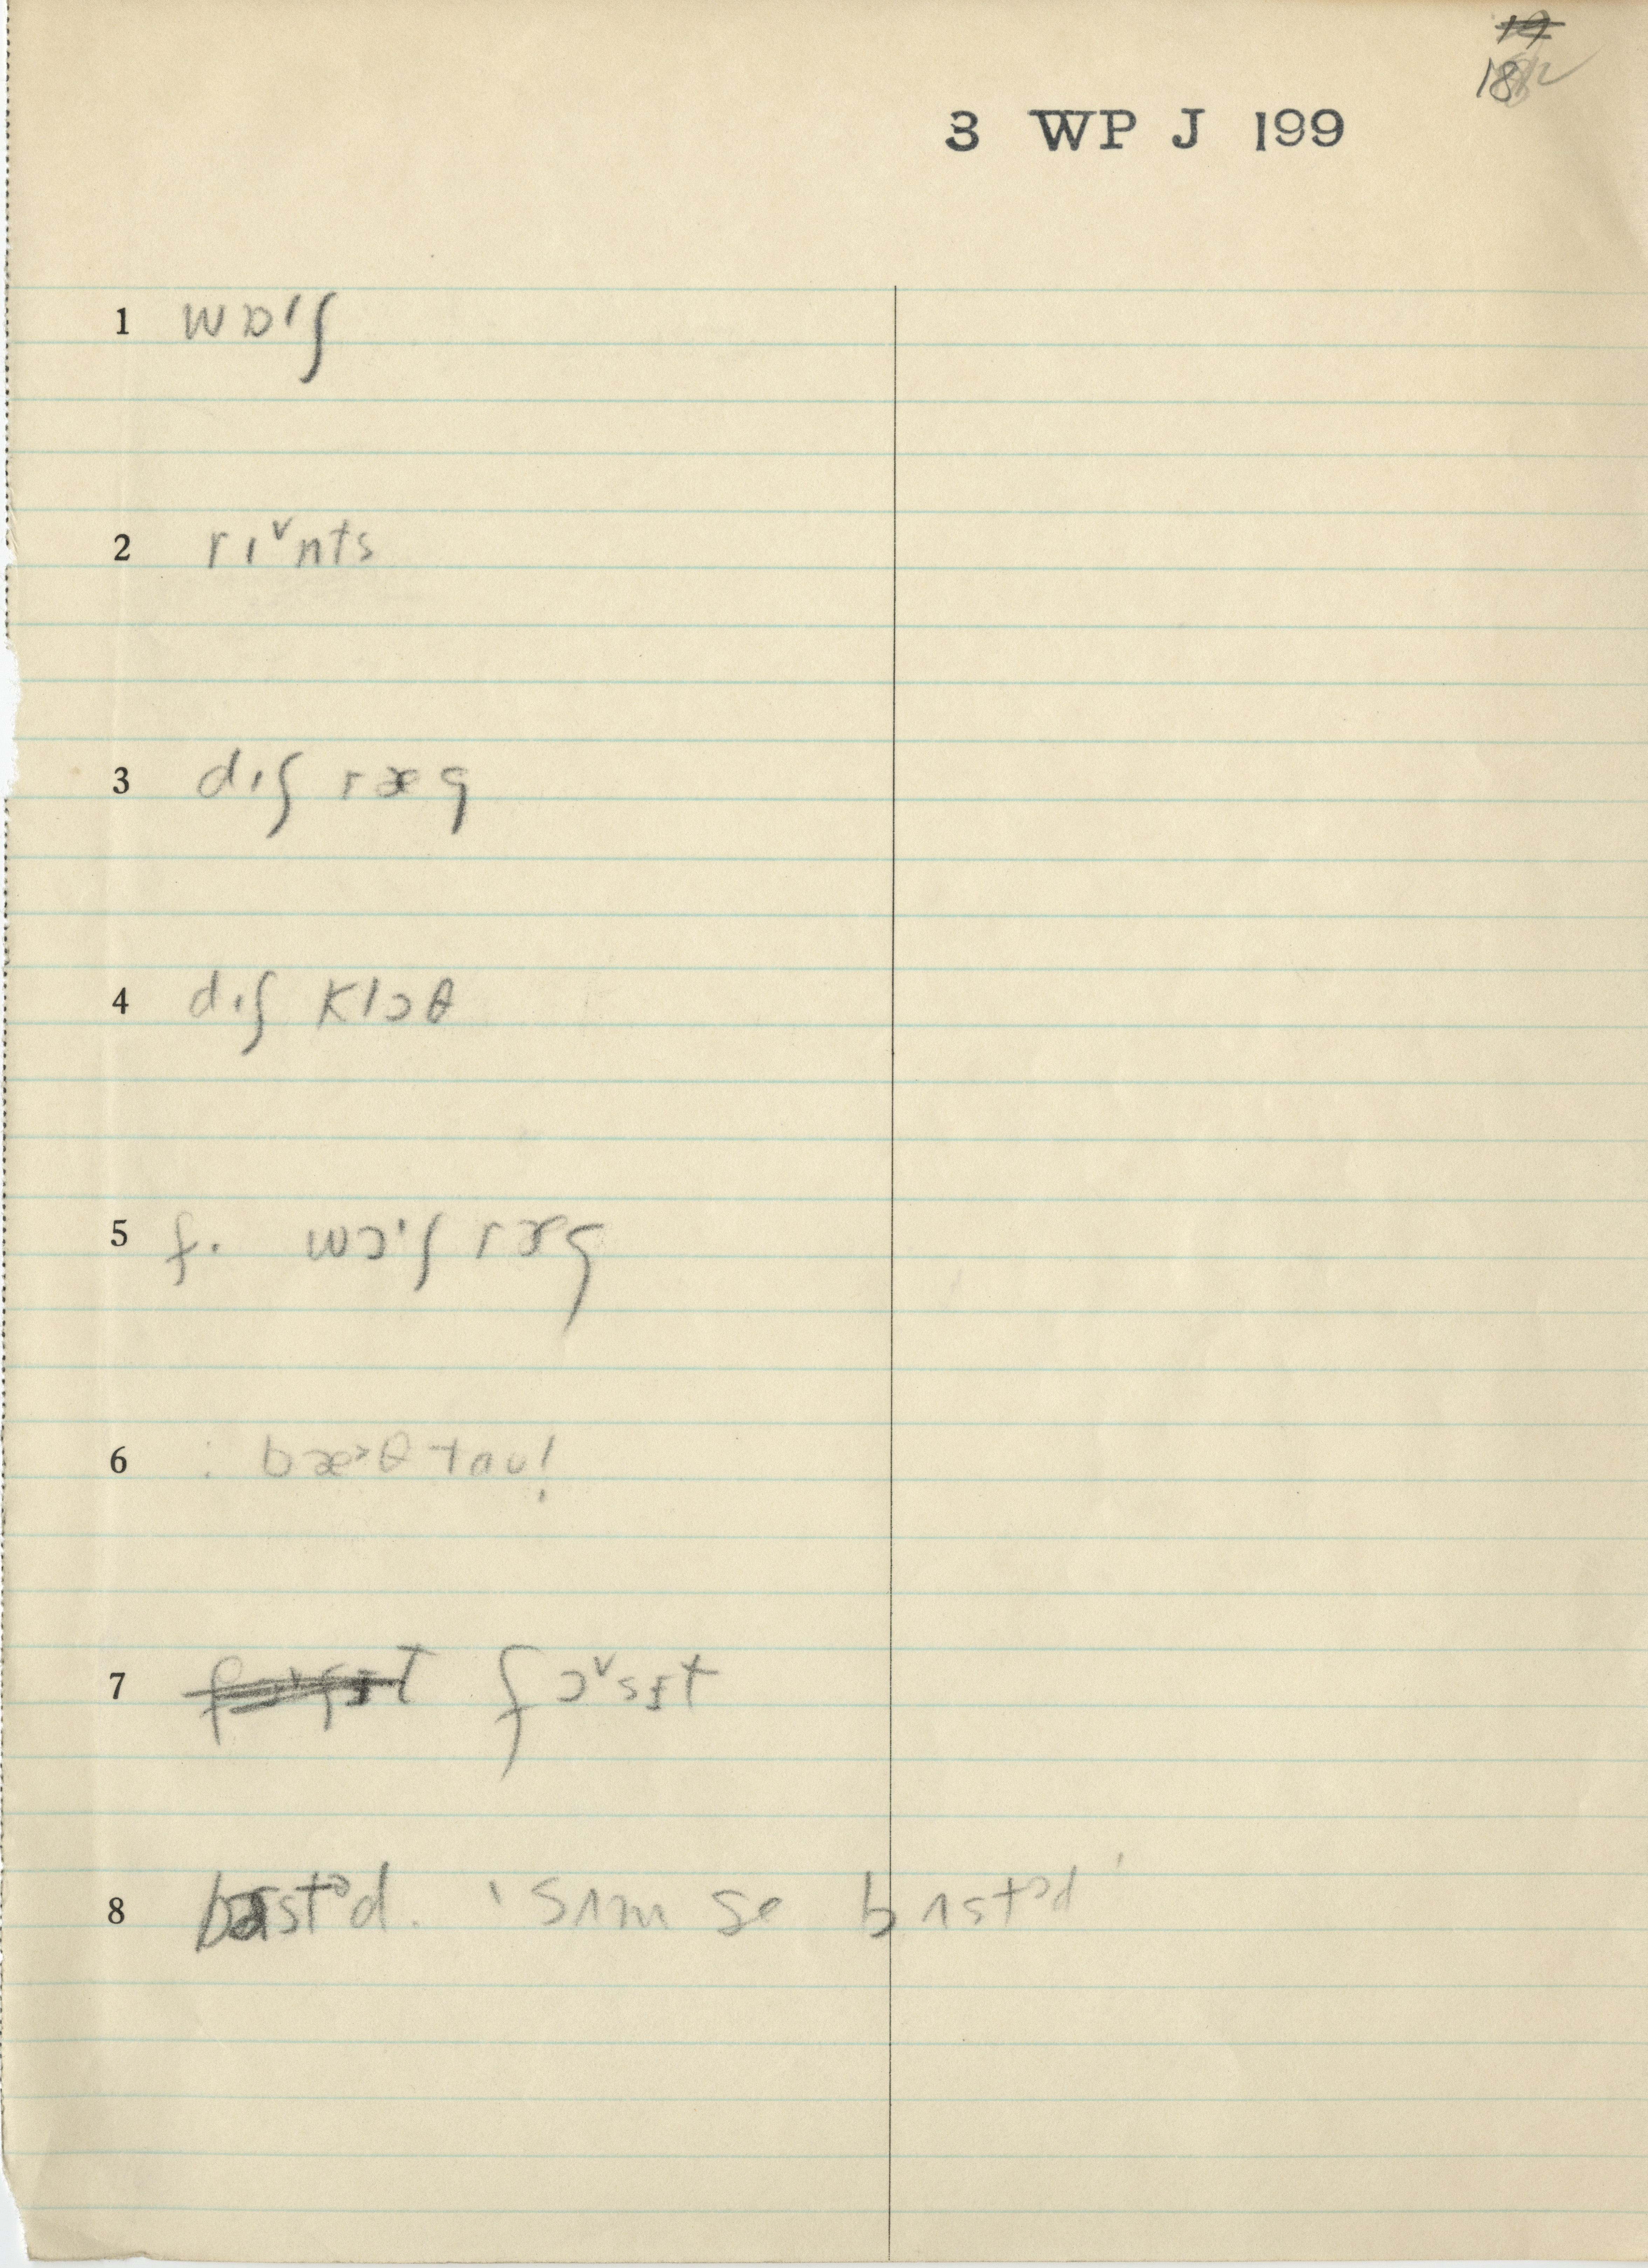 19
18
3 WP J 199
1 wɒ'ʃ
2 rɪᵛnts
3 dɪʃ ræg
4 dɪʃ klɔθ
5 f. wɔ'ʃ ræg
6 : bæ˃θ taʊ!
7 fɔᵛsɪt fɔᵛsɪt
8 bʌstᵊd. 'sʌm se bʌstᵊd'